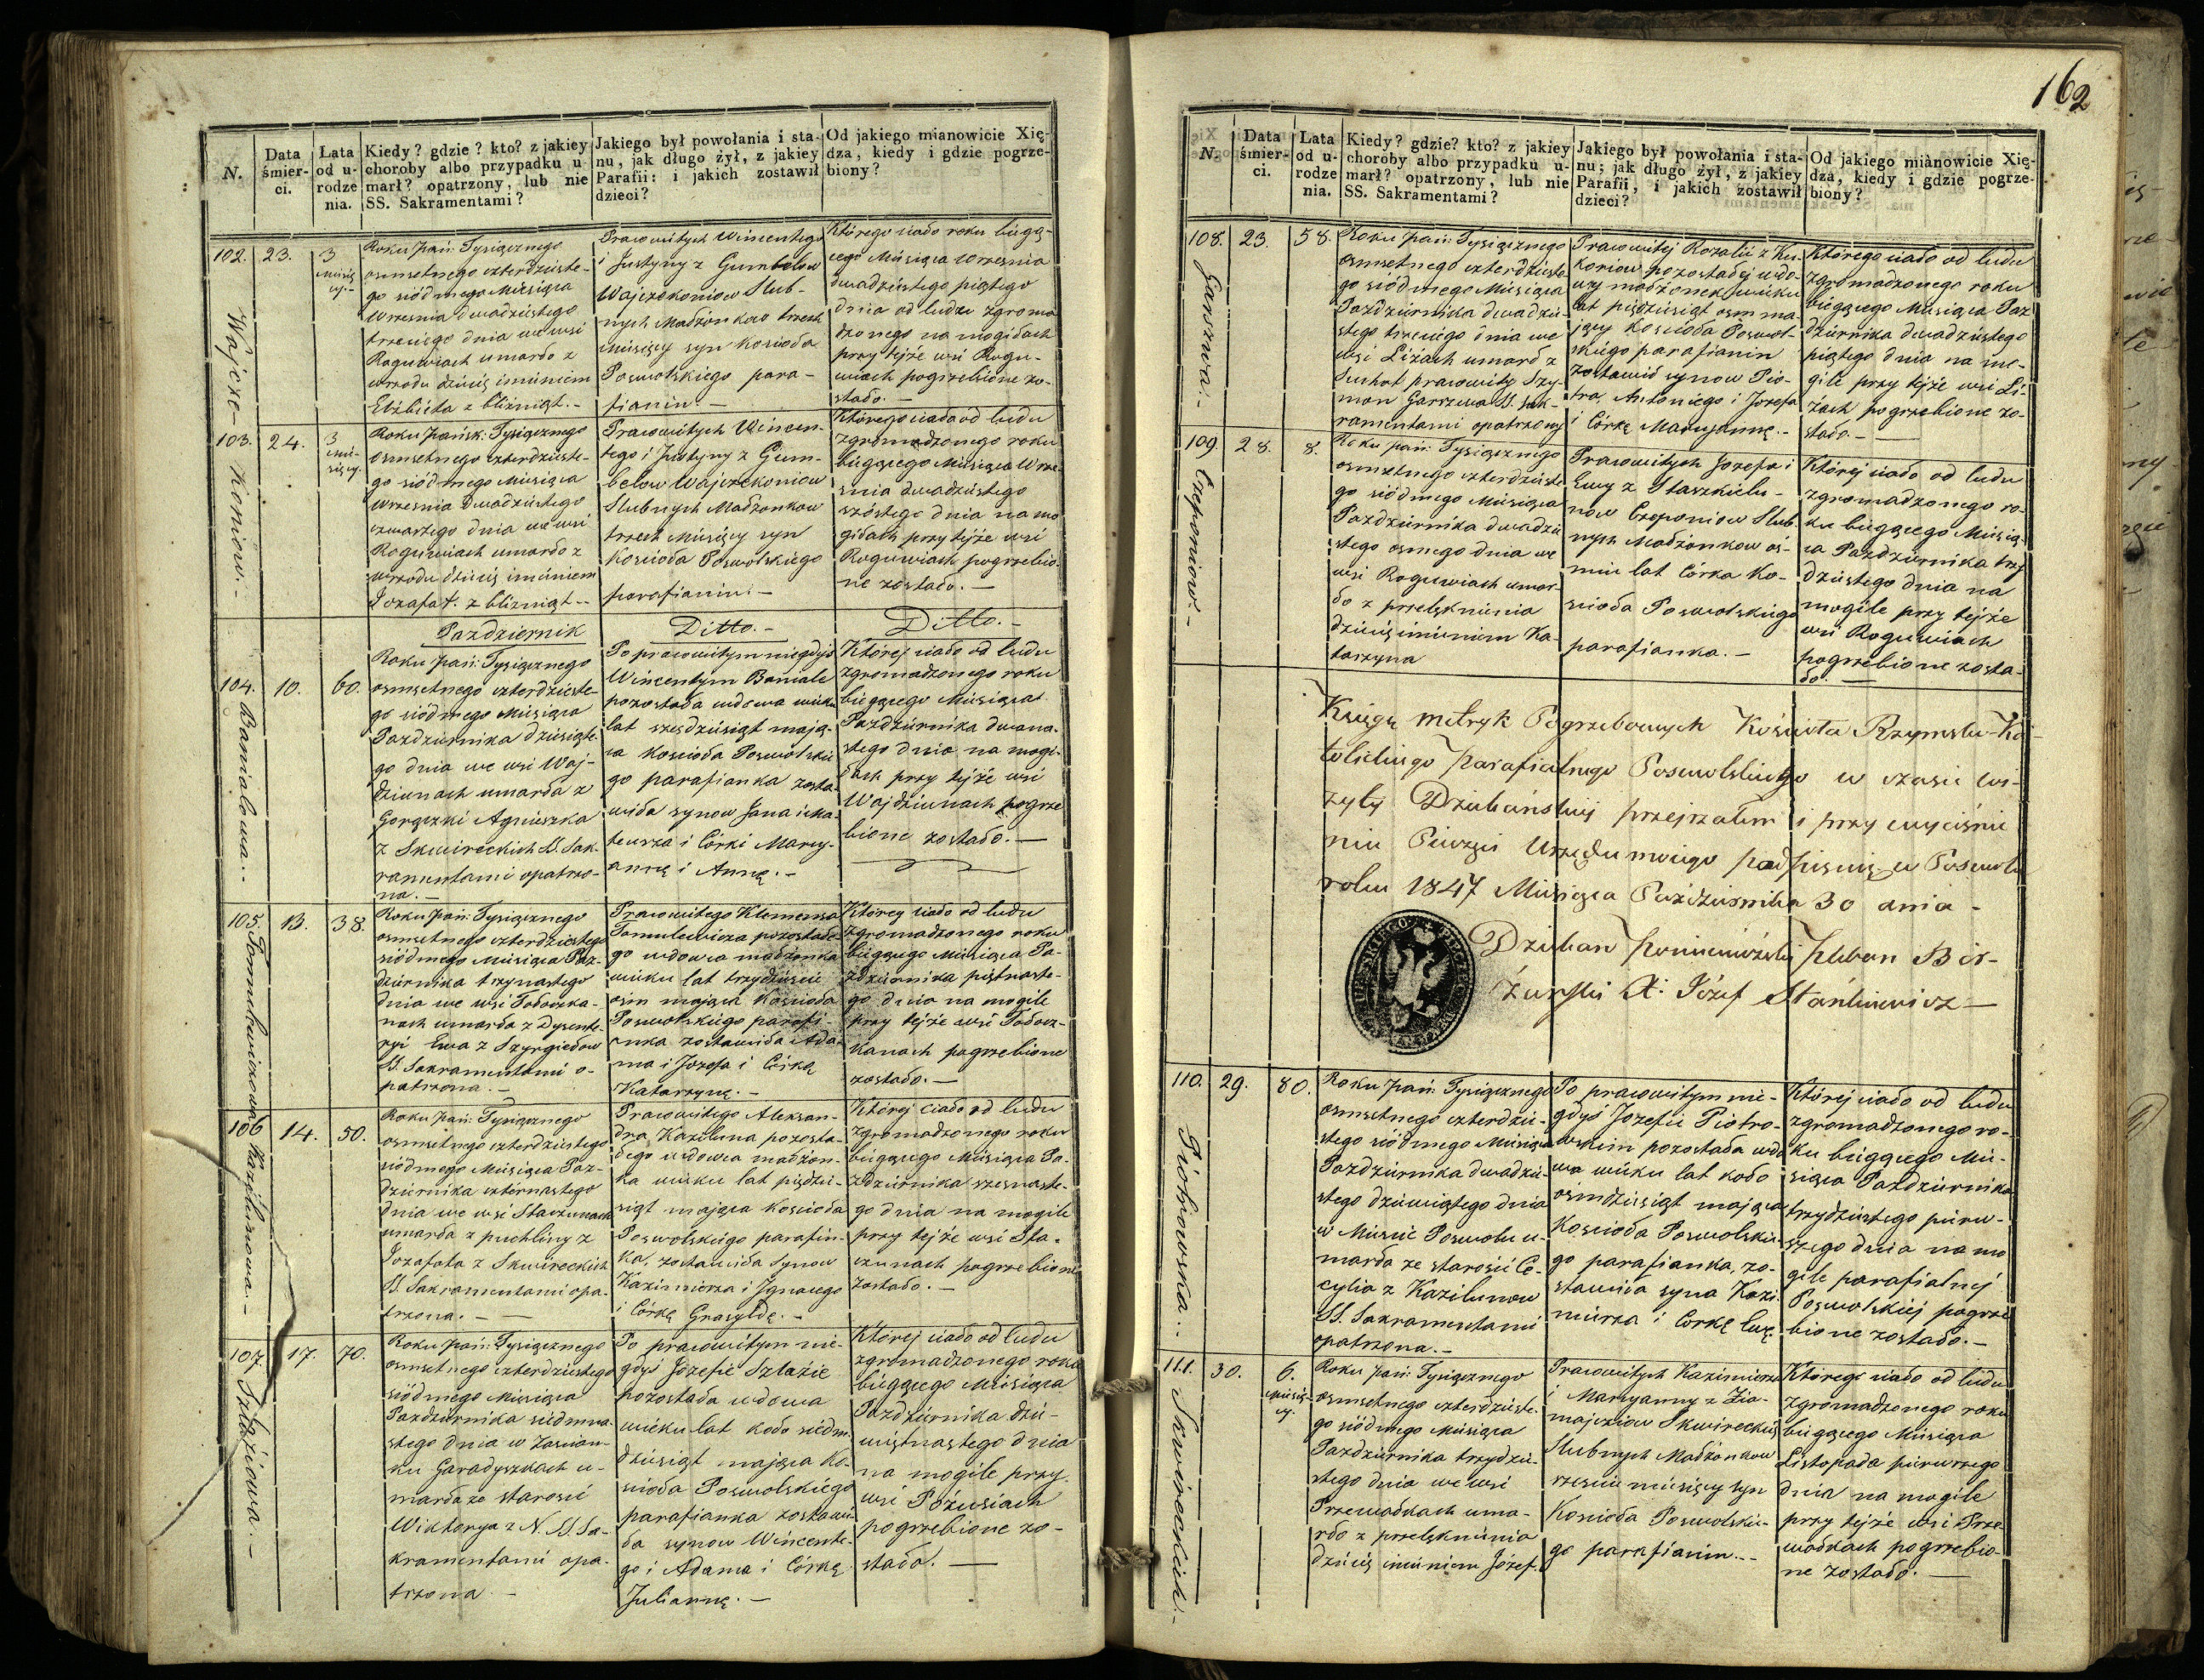 162
N.
Data
śmier-
ci.
Lata
od u-
rodze
nia.
Kiedy? gdzie? kto? z jakiey
choroby albo przypadku u-
marł? opatrzony, lub nie
SS. Sakramentami?
Jakiego był powołania i sta-
nu, jak długo żył, z jakiey
Parafii: i jakich zostawił
dzieci?
Od jakiego mianowicie Xię-
dza, kiedy i gdzie pogrze-
biony?
102.
23.
3
Miesię
cy.-
Roku pań: Tysiącznego
osmsetnego czterdzieste-
go siódmego Miesiąca
Wrzesnia dwadziestego
trzeciego dnia we wsi
Roguwiach umarło z
wrzodu dziecię imieniem
Elżbieta z bliźniąt.-
Pracowitych Wincentego
i Justyny z Gumbelow
Wajczekoniow Slub-
nych Małżonkow trzech
miesięcy syn Kościoła
Poswolskiego para-
fianin.-
Którego ciało roku biegą-
cego Miesiąca Wrzesnia
dwadziestego piątego
dnia od ludu zgroma
dzonego na mogiłach
przy tejże wsi Rogu-
wiach pogrzebione zo-
stało.-
103.
24.
3
Mie-
sięcy.
Roku Pańsk: Tysiącznego
osmsetnego czterdzieste-
go siódmego Miesiąca
Wrzesnia dwadziestego
czwartego dnia we wsi
Roguwiach umarło z
wrzodu dziecię imieniem
Jozafat. z blizniąt.-
Pracowitych Wincen-
tego i Justyny z Gum-
below Wajczekoniow
Slubnych Małżonkow
trzech Miesięcy syn
Kościoła Poswolskiego
parafianin.-
Którego ciało od ludu
zgromadzonego roku
biegącego Miesiąca Wrze-
snia dwadziestego
szóstego dnia na mo
giłach przy tejże wsi
Roguwiach pogrzebio-
ne zostało.-
Pazdziernik
Ditto.-
Ditto.-
104.
10.
60.
Banialowa.-
Roku pań: Tysiącznego
osmsetnego czterdzieste-
go siódmego Miesiąca
Pazdziernika dziesiąte-
go dnia we wsi Waj-
dziunach umarła z
Gorączki Agnieszka
z Skwireckich SS. Sak-
ramentami opatrzo-
na.-
Po pracowitym niegdyś
Wincentym Baniale
pozostała wdowa wieku
lat szesdziesiąt mają-
ca Kościoła Poswolskie
go parafianka zosta-
wiła synow Jana i Ma-
teusza i Córki Mary-
annę i Annę.-
Której ciało od ludu
zgromadzonego roku
biegącego Miesiąca
Pazdziernika dwuna-
stego dnia na mogi-
łach przy tejże wsi
Wajdziunach pogrze
bione zostało.-
105.
13.
38.
Tomulewiczowa
Roku pań: Tysiącznego
osmsetnego czterdziestego
siódmego Miesiąca Paz-
dziernika trzynastego
dnia we wsi Tołoczka-
nach umarła z Dysente-
ryi Ewa z Szyrgiełow
SS. Sakramentami o-
patrzona.-
Pracowitego Klemensa
Tamulewicza pozostałe-
go wdowca małżonka
wieku lat trzydzieście
osm mająca Kościoła
Poswolskiego parafi-
anka zostawiła Ada-
ma i Jozefa i Córkę
Katarzynę.-
Którey ciało od ludu
zgromadzonego roku
biegącego Miesiąca Pa-
zdziernika piętnaste-
go dnia na mogile
przy tejże wsi Tołocz-
kanach pogrzebione
zostało.-
106
14.
50.
Kazilunowa.-
Roku pań: Tysiącznego
osmsetnego czterdziestego
siódmego Miesiąca Paz-
dziernika czternastego
dnia we wsi Staczunach
umarła z puchliny z
Jozafata z Skwireckich
SS. Sakramentami opa-
trzona.-
Pracowitego Aleksan-
dra Kaziluna pozosta-
łego wdowca małżon-
ka wieku lat pięćdzie-
siąt mająca Kościoła
Poswolskiego parafin-
ka, zostawiła Synow
Kazimierza i Ignacego
i Córkę Grasyldę.-
Której ciało od ludu
zgromadzonego roku
biegącego Miesiąca Pa-
zdziernika szesnaste-
go dnia na mogile
przy tejże wsi Sta-
czunach pogrzebione
zostało.-
107.
17.
70.
Szlaziowa.-
Roku pań: Tysiącznego
osmsetnego czterdziestego
siódmego Miesiąca
Pazdziernika siedmna-
stego dnia w Zascian-
ku Garadyszkach u-
marła ze starości
Wiktorya z N. SS. Sa-
kramentami opa-
trzona.-
Po pracowitym nie-
gdyś Józefie Szlazie
pozostała wdowa
wieku lat koło siedm-
dziesiąt mająca Ko-
ścioła Poswolskiégo
parafianka zostawi-
ła synow Wincente-
go i Adama i Córkę
Juliannę.-
Której ciało od ludu
zgromadzonego roku
biegącego Miesiąca
Pazdziernika dzie-
więtnastego dnia
na mogile przy
wsi Pożusiach
pogrzebione zo-
stało.-
N.
Data
śmier-
ci.
Lata
od u-
rodze
nia.
Kiedy? gdzie? kto? z jakiey
choroby albo przypadku u-
marł? opatrzony, lub nie
SS. Sakramentami?
Jakiego był powołania i sta-
nu; jak długo żył, z jakiey
Parafii, i jakich zostawił
dzieci?
Od jakiego mianowicie Xię-
dza, kiedy i gdzie pogrze-
biony?
108.
23.
58.
Garszwa.-
Roku pań: Tysiącznego
osmsetnego czterdzieste
go siódmego Miesiąca
Pazdziernika dwadzie-
stego trzeciego dnia we
wsi Liżach umarł z
Suchot pracowity Szy-
mon Garszwa SS. Sak-
ramentami opatrzony
Pracowitej Rozalii z Ku-
koniow pozostałej wdo-
wy małżonek wieku
lat pięćdziesiąt osm ma-
jący Kościoła Poswol-
skiégo parafianin
zostawił synow Pio-
tra, Antoniego i Jozefa
i Córkę Maryjannę.-
Którego ciało od ludu
zgromadzonego roku
biegącego Miesiąca Paz
dziernika dwadziestego
piątego dnia na mo-
gile przy tejże wsi Li-
żach pogrzebione zo-
stało.-
109.
28.
8.
Czeponiow.-
Roku pań: Tysiącznego
osmsetnego czterdzieste
go siódmego Miesiąca
Pazdziernika dwadzie
stego osmego dnia we
wsi Roguwiach umar-
ło z przelęknienia
dziecię imieniem Ka-
tarzyna
Pracowitych Jozefa i
Ewy z Staszkielu-
now Czeponiow Slub-
nych Małżonkow oś-
miu lat Córka Ko-
ścioła Poswolskiego
parafianka.-
Której ciało od ludu
zgromadzonego ro-
ku biegącego Miesią-
ca Pazdziernika trzy
dziestego dnia na
mogile przy tejże
wsi Roguwiach
pogrzebione zosta-
ło.-
Księgę metryk Pogrzebowych Kościoła Rzymsko-Ka-
tolickiego Parafialnego Poswolskiego w czasie wi-
zyty Dziekańskiej przejrzałem i przy wyciśnie
niu Pieczęci Urzędu mojego podpisuię w Poswolu
roku 1847 Miesiąca Października 30 dnia -
Dziekan Poniewieżski Pleban Bir-
żański X: Józef Stankiewicz -
110.
29.
80.
Piotrowska.-
Roku pań: Tysiącznego
osmsetnego czterdzie-
stego siódmego Miesiąca
Pazdziernika dwadzie-
stego dziewiątego dnia
w Miescie Poswolu u-
marła ze starości Ce-
cylia z Kazilunow
SS. Sakramentami
opatrzona.-
Po pracowitym nie-
gdyś Jozefie Piotro-
wskim pozostała wdo
wa wieku lat koło
osimdziesiąt mająca
Kościoła Poswolskie-
go parafianka, zo-
stawiła syna Kazi-
mierza i Córkę Ewę.
Której ciało od ludu
zgromadzonego ro-
ku biegącego Mie-
siąca Pazdziernika
trzydziestego pierw-
szego dnia na mo
gile parafialnej
Poswolskiéj pogrze
bione zostało.-
111.
30.
6.
Miesię-
cy.
Skwireckich.-
Roku pań: Tysiącznego
osmsetnego czterdzieste-
go siódmego Miesiąca
Pazdziernika trzydzie-
stego dnia we wsi
Przewałkach uma-
rło z przelęknienia
dziecię imieniem Józef.
Pracowitych Kazimierza
i Maryanny z Zia-
majcziow Skwireckich
Slubnych Małżonkow
sześciu miesięcy syn
Kościoła Poswolskie-
go parafianin.-
Którego ciało od ludu
zgromadzonego roku
biegącego Miesiąca
Listopada pierwszego
dnia na mogile
przy tejże wsi Prze-
wałkach pogrzebio-
ne zostało.-